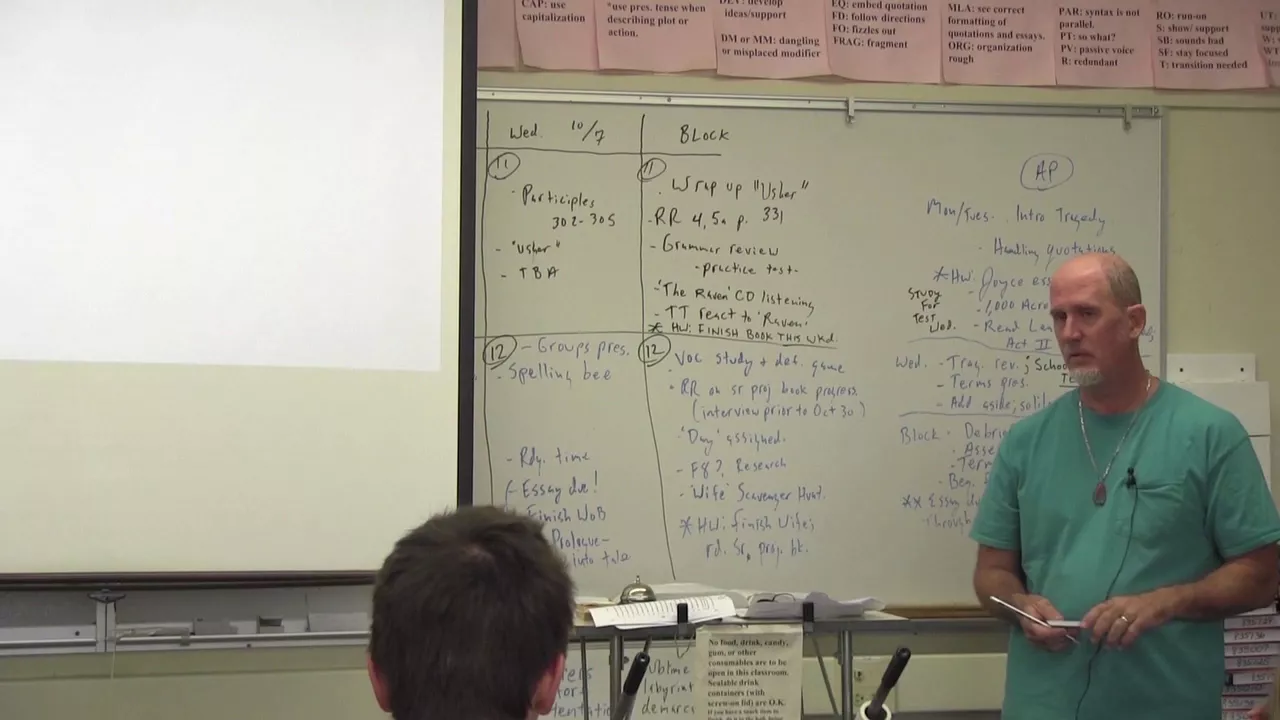 CAP: use
capitalization
*use pres. tense when
describing plot or
action.
DEV: develop
ideas/support
DM or MM: dangling
or misplaced modifier
EQ: embed quotation
FD: follow directions
FO: fizzles out
FRAG: fragment
MLA: see correct
formatting of
quotations and essays.
ORG: organization
rough
PAR: syntax is not
parallel.
PT: so what?
PV: passive voice
R: redundant
RO: run-on
S: show/ support
SB: sounds bad
SF: stay focused
T: transition needed
Wed. 10/7
11
- Participles
302-305
- "Usher"
- TBA
12
- Groups pres.
- Spelling bee
- Rdg. time
- Essay due!
Finish WoB
Prologue-
into tale
BLOCK
11
. Wrap up "Usher"
- RR 4, 5a p. 331
- Grammar review
- practice test-
- 'The Raven' CD listening
- TT react to 'Raven'
* HW: FINISH BOOK THIS WKD.
12
- Voc study + def. game
- RR on sr proj book progress.
(interview prior to Oct 30)
- 'Day' assigned.
- F8? Research
- 'Wife' Scavenger Hunt.
* HW: finish Wife;
rd. Sr. proj. bk.
AP
Mon/Tues. . Intro Tragedy
- Handling quotations
* HW: Joyce es
- 1,000 Acre
- Read
Act II
STUDY
FOR
TEST
WED.
Wed. - Trag. rev.; School
- Terms pres.
- Add aside; solil
Block - Debrie
. Asse
- Ter
- Beg.
** Essay
Through
No food, drink, candy,
gum, or other
consumables are to be
open in this classroom.
Sealable drink
containers (with
screw-on lid) are O.K.
ublime
labyri
demarc